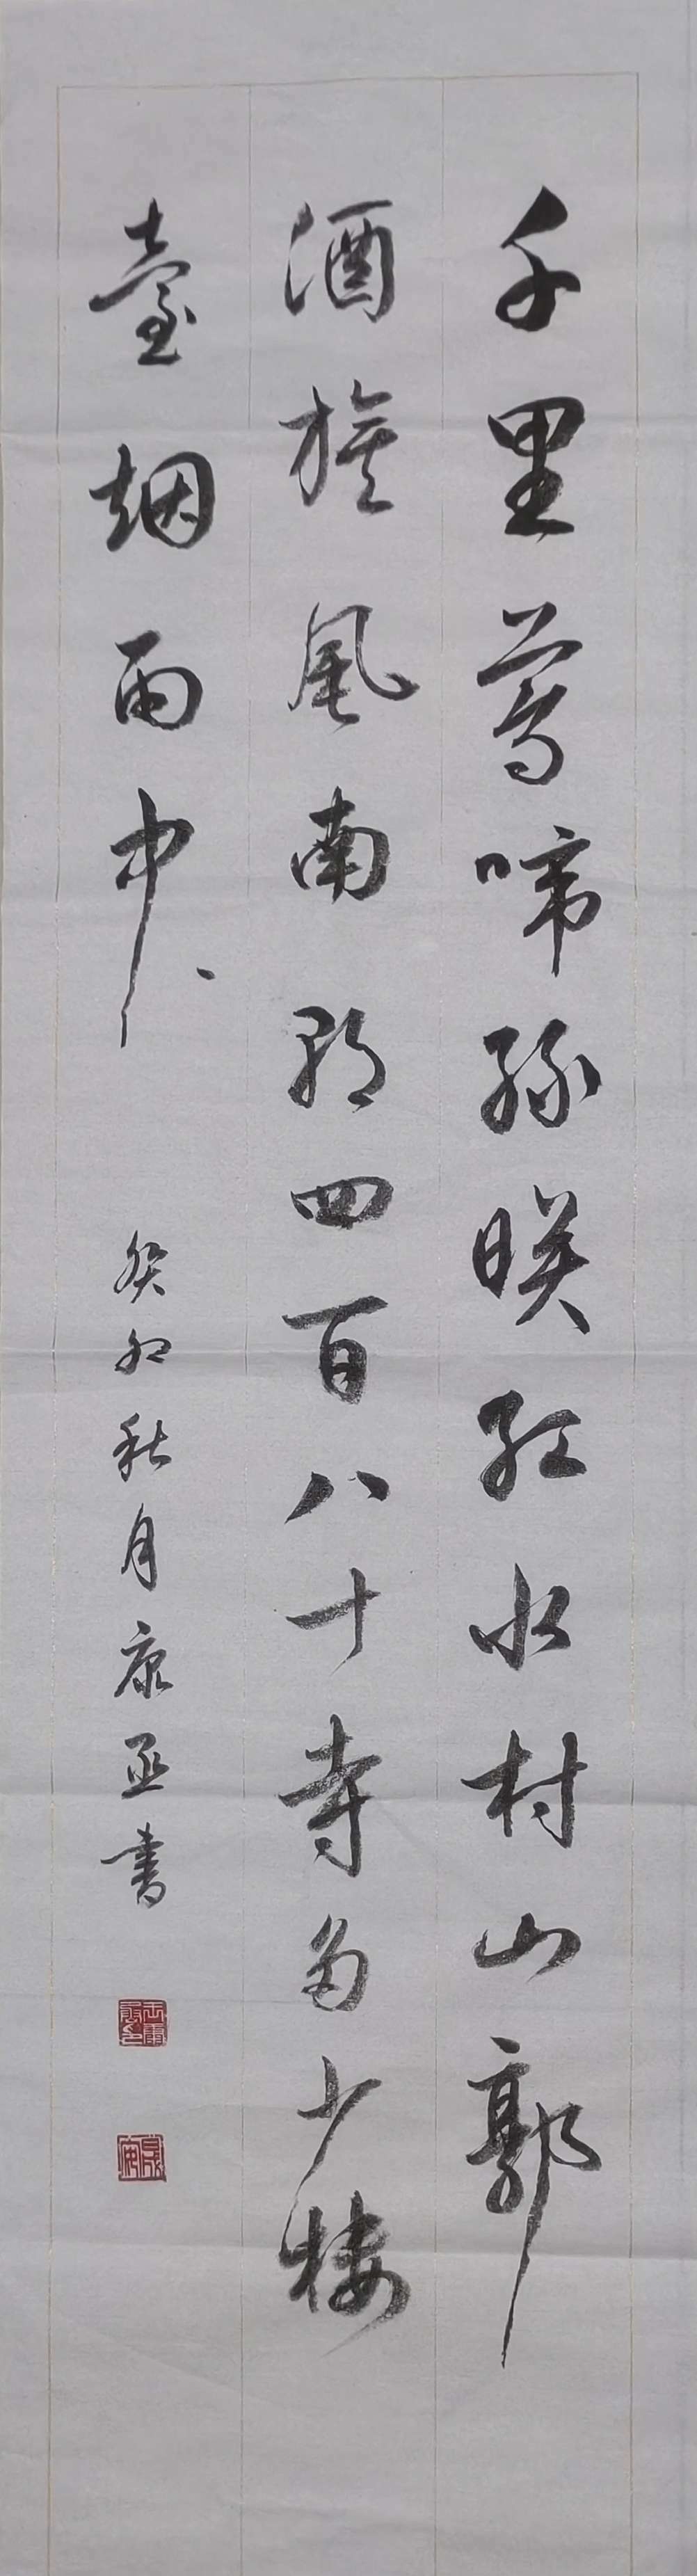 千里莺啼绿映红水村山郭
酒旗风南朝四百八十寺多少楼
臺烟雨中
癸卯秋月康丞书